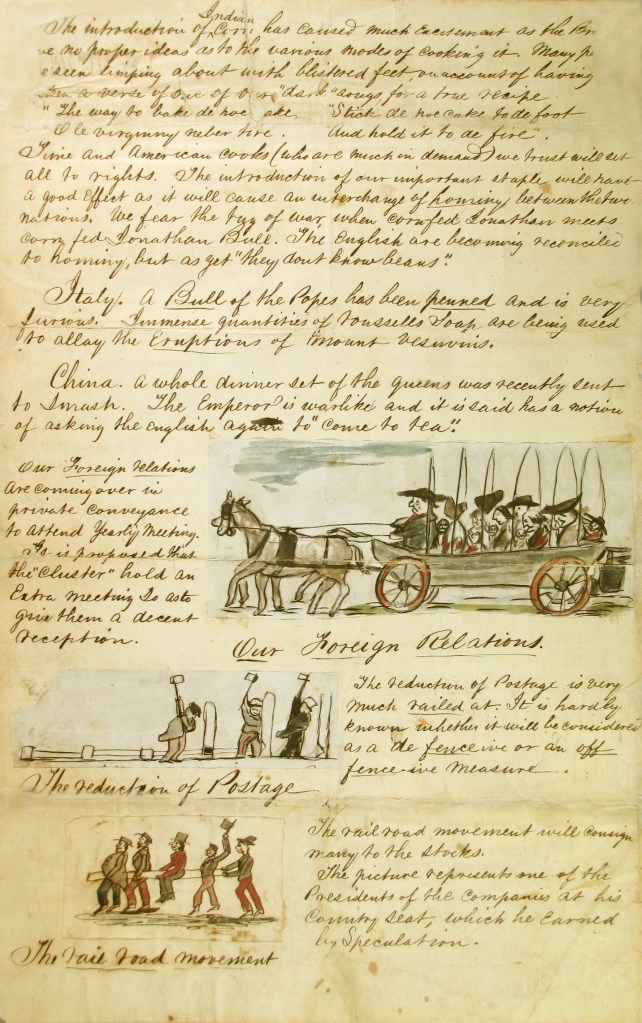 The introduction of Indian Corn has caused much excitement as the Br
ve no proper ideas as to the various modes of cooking it. Many pe
e seen limping about with blistered feet, on account of having
a verse of one of our "dark" songs for a true recipe.
" The way to bake de hoe ake. "Stick de hoe cake to de foot
Ole virginny neber tire. And hold it to de fire".
Time and American cooks (who are much in demand) we trust will set
all to rights. The introduction of our important staple will have
a good Effect as it will cause an interchange of hominy between the two
nations. We fear the tug of war when corn fed Jonathan meets
corn fed Jonathan Bull. The English are becoming reconciled
to hominy, but as yet "they dont know beans".
Italy. A Bull of the Popes has been penned and is very
furious. Immense quantities of Roussells Soap are being used
to allay the Eruptions of Mount Vesuvius.
China. A whole dinner set of the queens was recently sent
to Smash. The Emperor is warlike and it is said has a notion
of asking the English again to "come to tea".
Our Foreign relations
are coming over in
private conveyance
to attend Yearly Meeting.
It is proposed that
the "Cluster" hold an
Extra meeting so as to
give them a decent
reception.
Our Foreign Relations.
The reduction of Postage is very
much railed at. It is hardly
known whether it will be considered
as a de fence ive or an off
fence-ive measure.
The reduction of Postage
The rail road movement will consign
many to the stocks.
The picture represents one of the
Presidents of the Companies at his
Country Seat, which he Earned
by Speculation.
The rail road movement